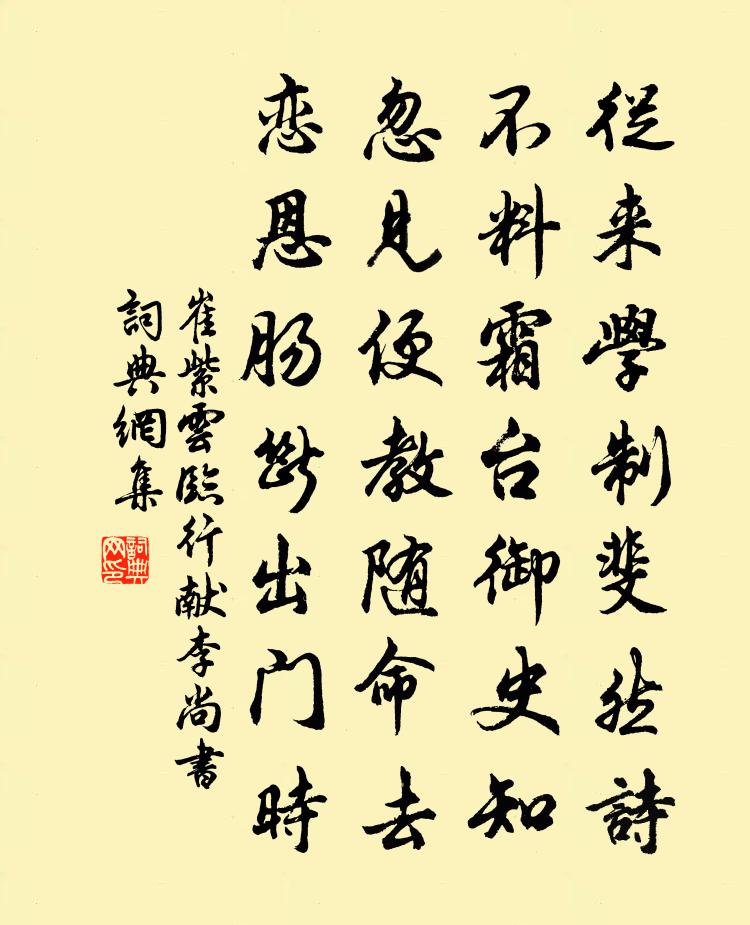 從来學制斐然詩
不料霜台御史知
忽見便教随命去
恋恩肠斷出門時
崔紫雲臨行献李尚書
詞典網集
詞典网印